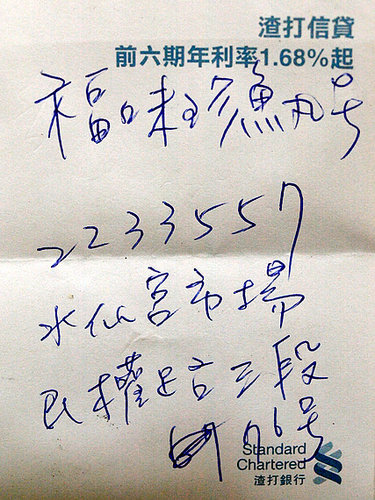 渣打信貸
前六期年利率1.68%起
福味珍魚丸号
2233557
水仙宮市場
民權路三段
76号
Standard
Chartered
渣打銀行